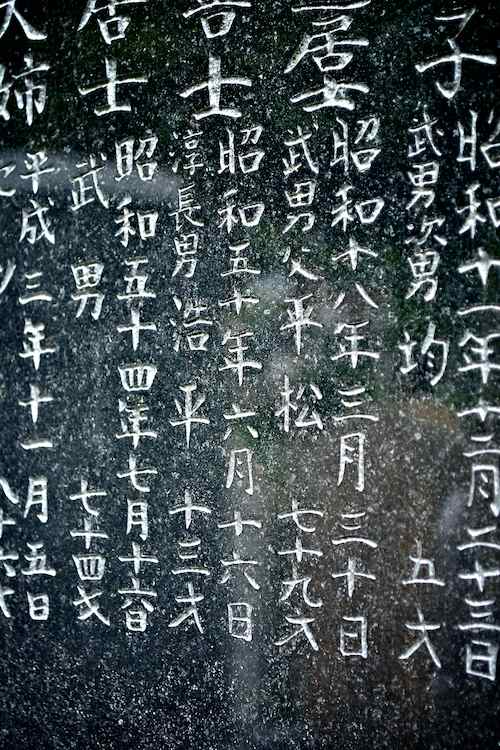 子
昭和十一年十二月二十三日
武男次男 均 五才
居士
昭和十八年三月三十日
武男父平松 七十九才
士
昭和五十年六月十六日
淳長男 浩平 十三才
居士
昭和五十四年七月十六日
武男 七十四才
大姉
平成三年十一月五日